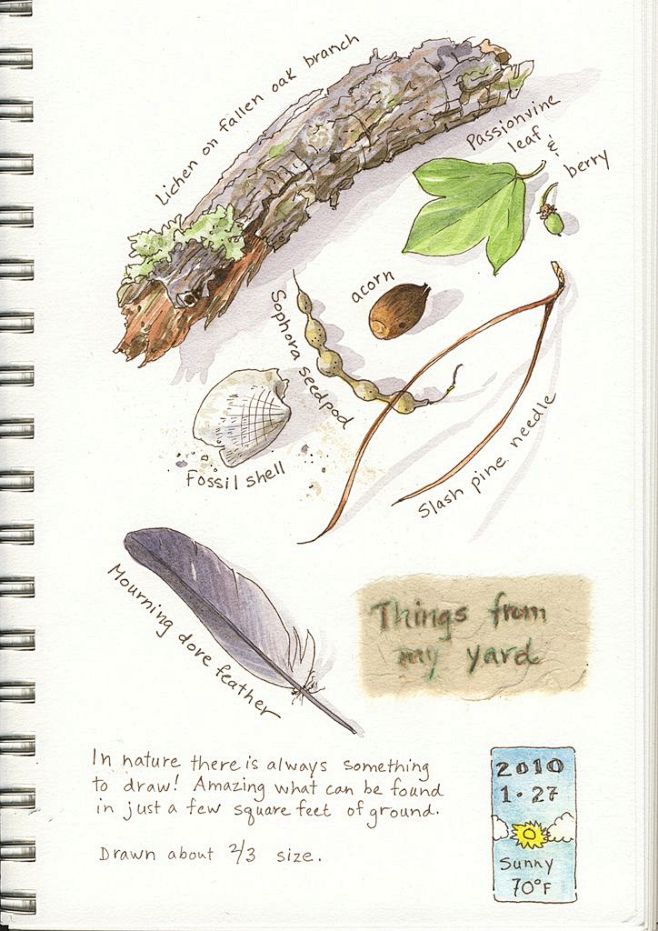 Lichen on fallen oak branch
Passionvine
leaf &
berry
acorn
Sophora seedpod
Fossil shell
Slash pine needle
Mourning dove feather
Things from
my yard
In nature there is always something
to draw! Amazing what can be found
in just a few square feet of ground.
Drawn about 2/3 size.
2010
1·27
Sunny
70°F